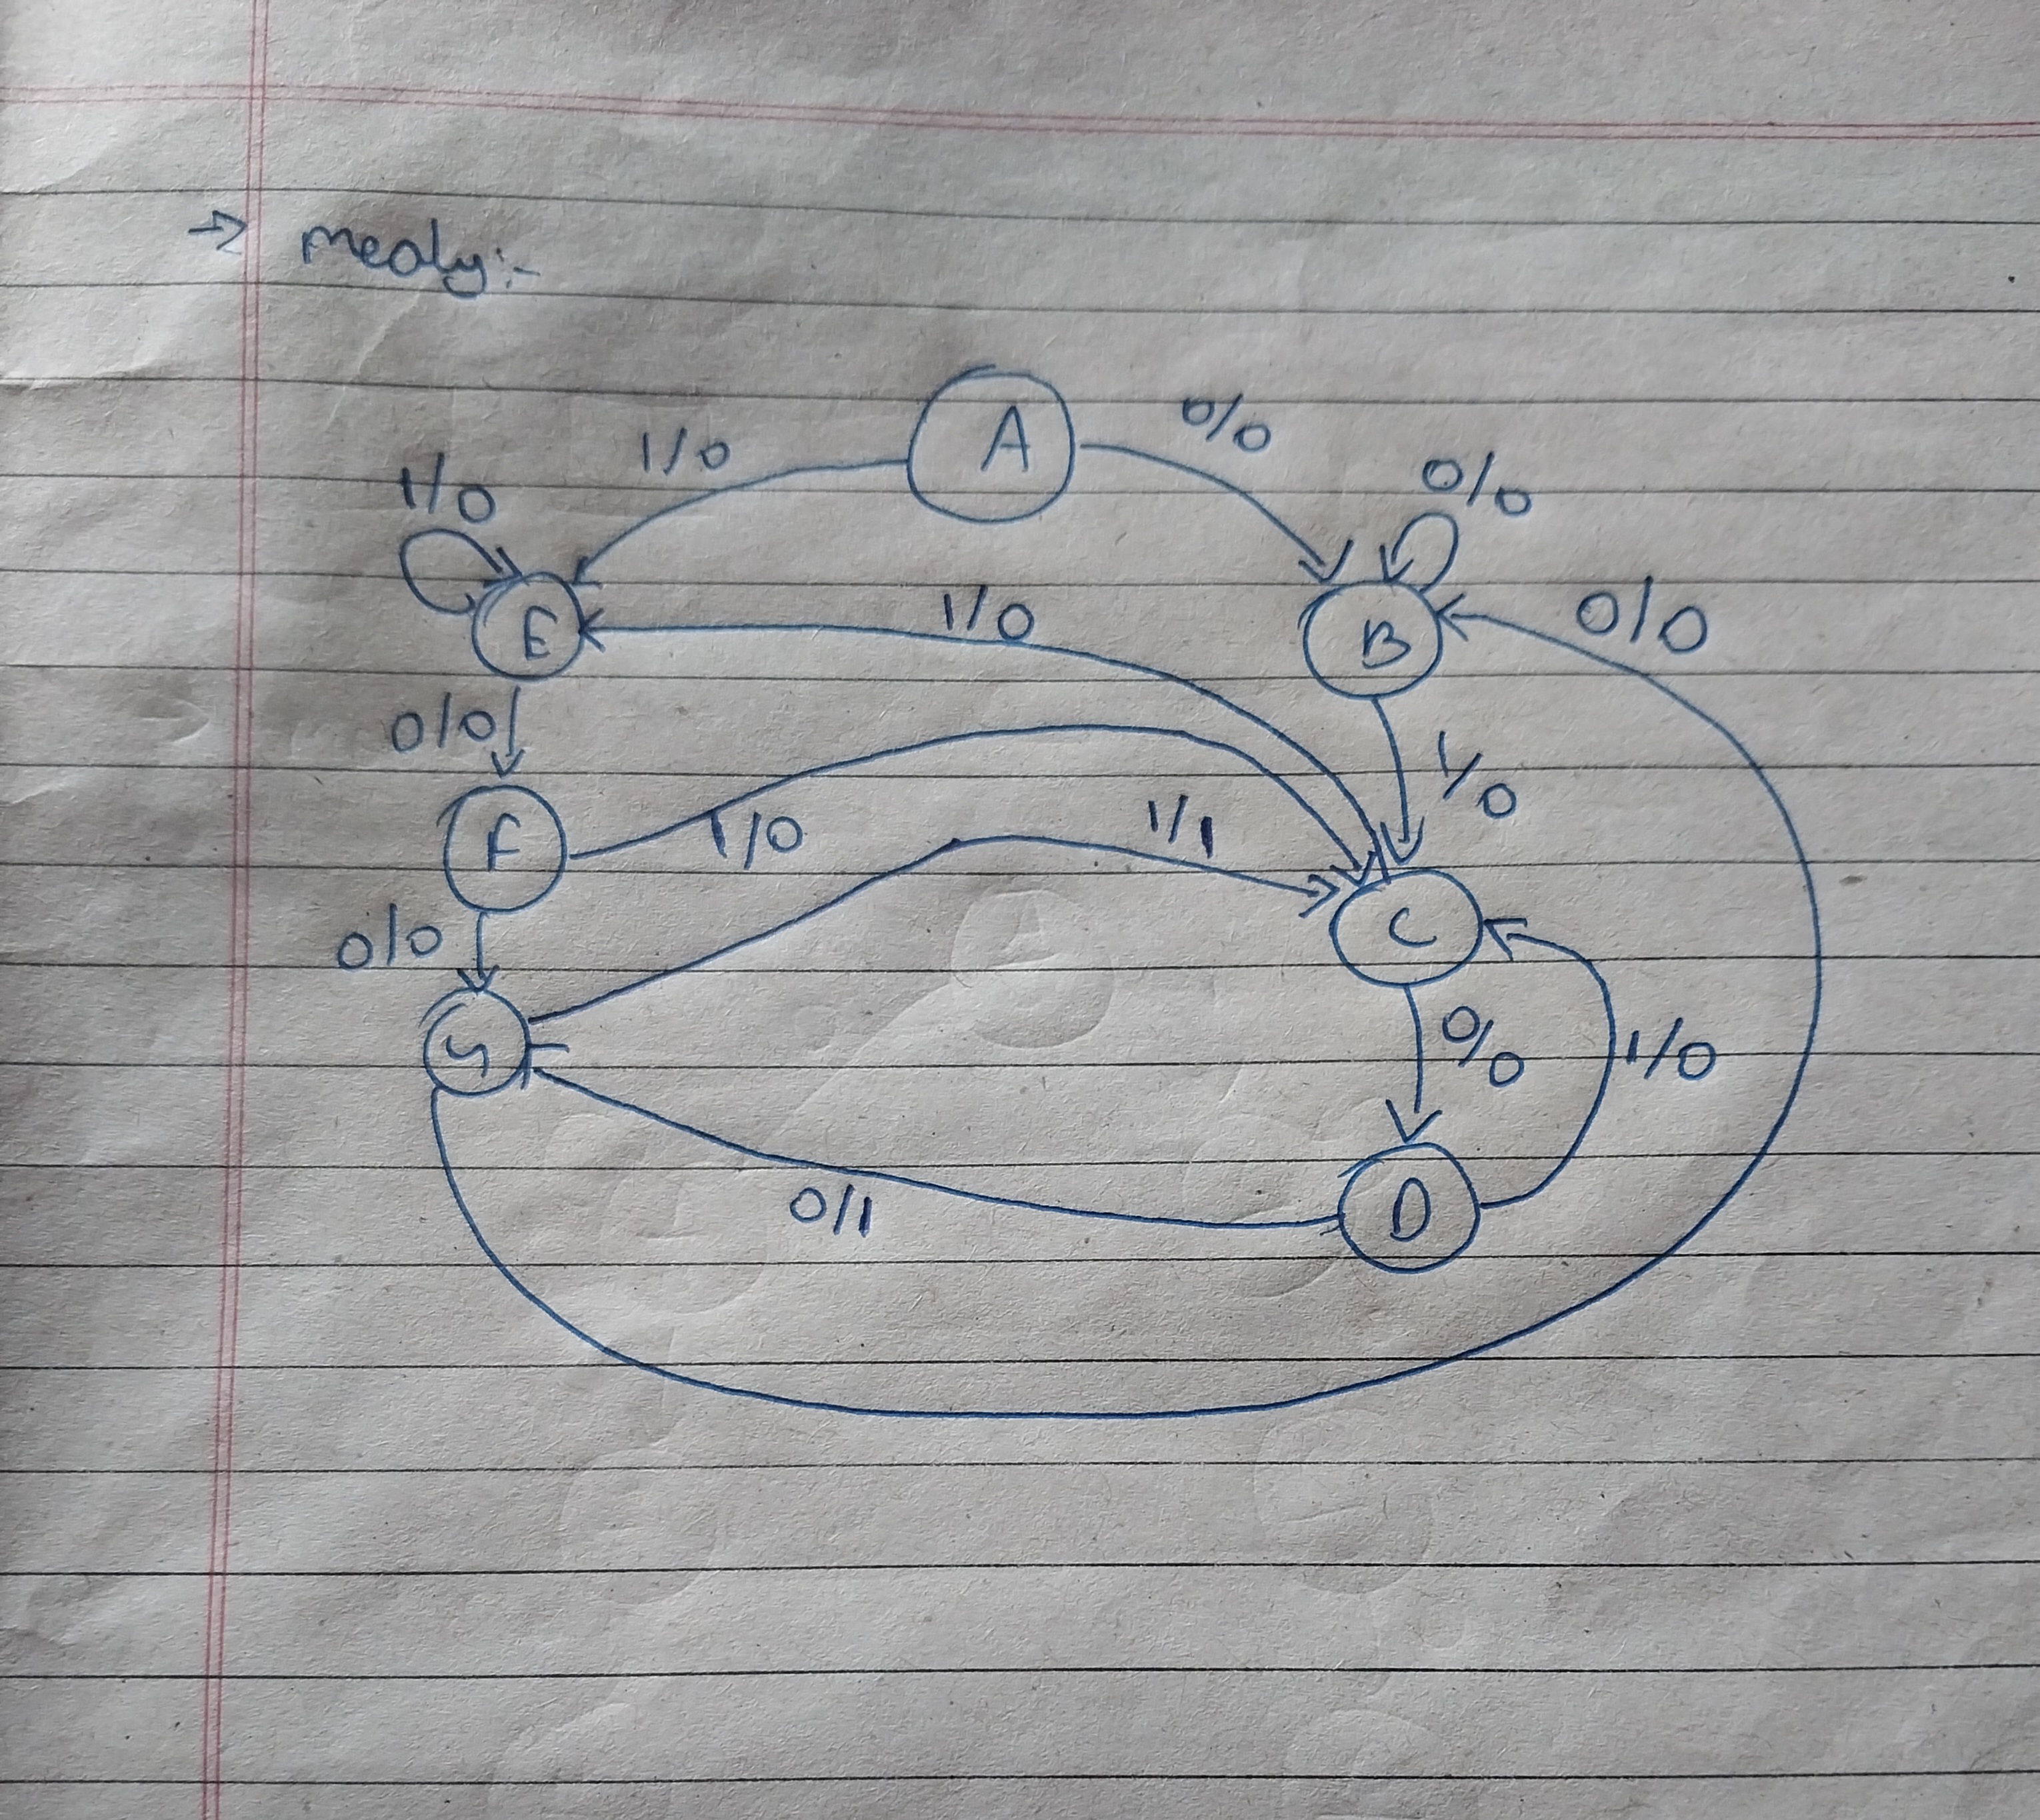 → mealy:-
A
0/0
1/0
1/0
0/0
E
1/0
B
0/0
0/0
1/0
F
1/0
1/1
C
0/0
G
0/0
1/0
0/1
D